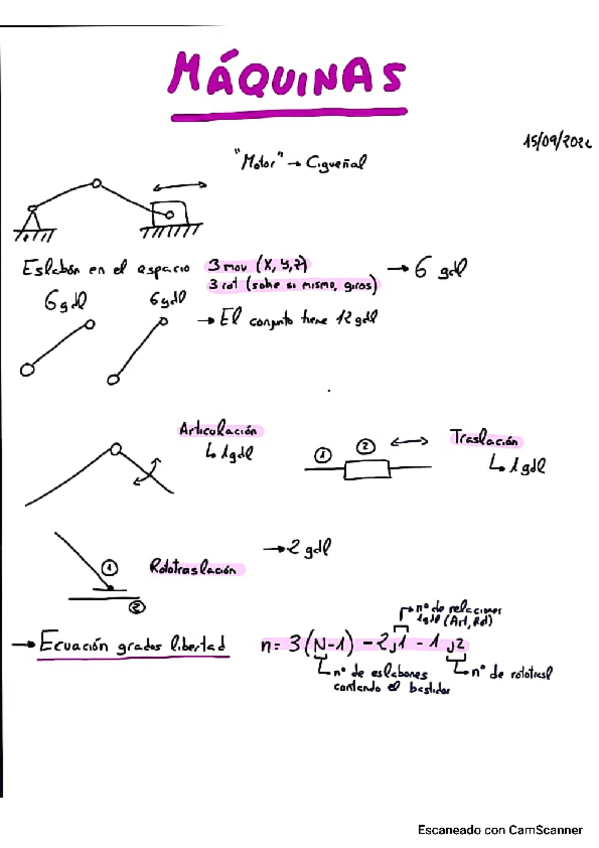 MÁQUINAS
15/09/2022
"Motor" → Cigueñal
Eslabón en el espacio 3 mov (X, Y, Z) → 6 gdl
3 rot (sobre si mismo, giros)
6 gdl 6 gdl
→ El conjunto tiene 12 gdl
Articulación
↳ 1 gdl
① ② Traslación
↳ 1 gdl
① Rototraslación → 2 gdl
②
nº de relaciones
1gdl (Art, Rel)
→ Ecuación grados libertad n = 3(N-1) - 2j1 - 1j2
nº de eslabones
contando el bastidor
nº de rototrasl
Escaneado con CamScanner